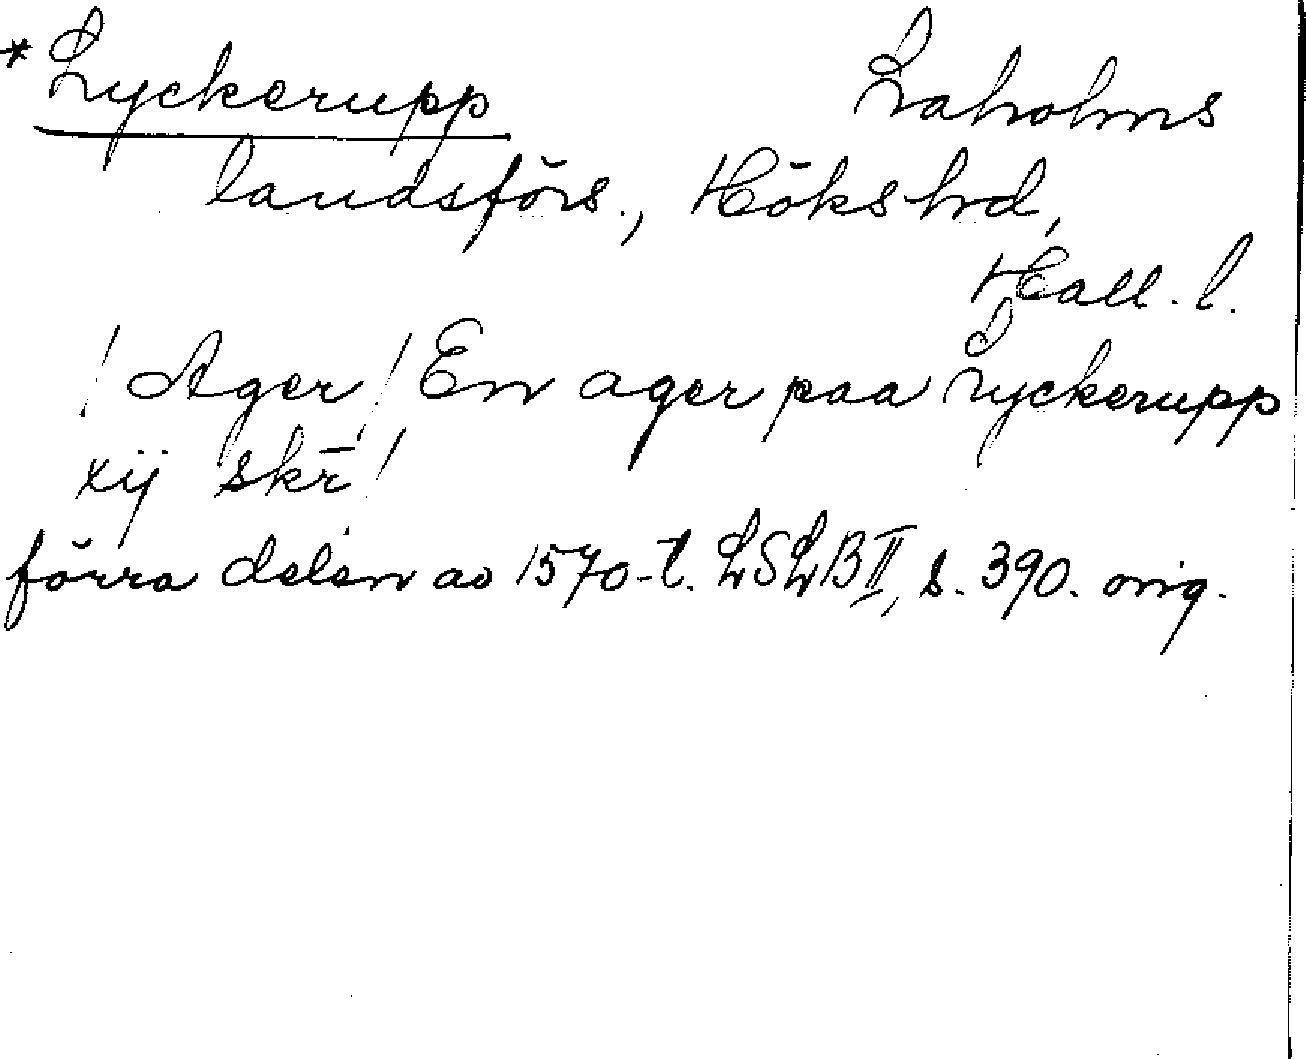 *Lyckerupp Laholms
landsförs., Höks hrd,
Hall. l.
/Ager/ En ager paa Lyckerupp
xij skr̄/
förra delen av 1570-t. LSLB II, s. 390. orig.